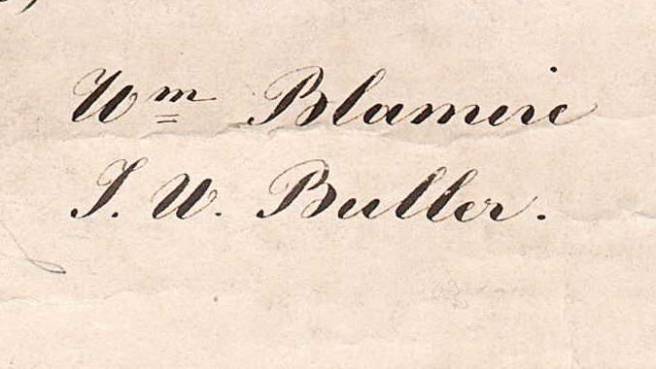 Wm Blamire
T. W. Buller.